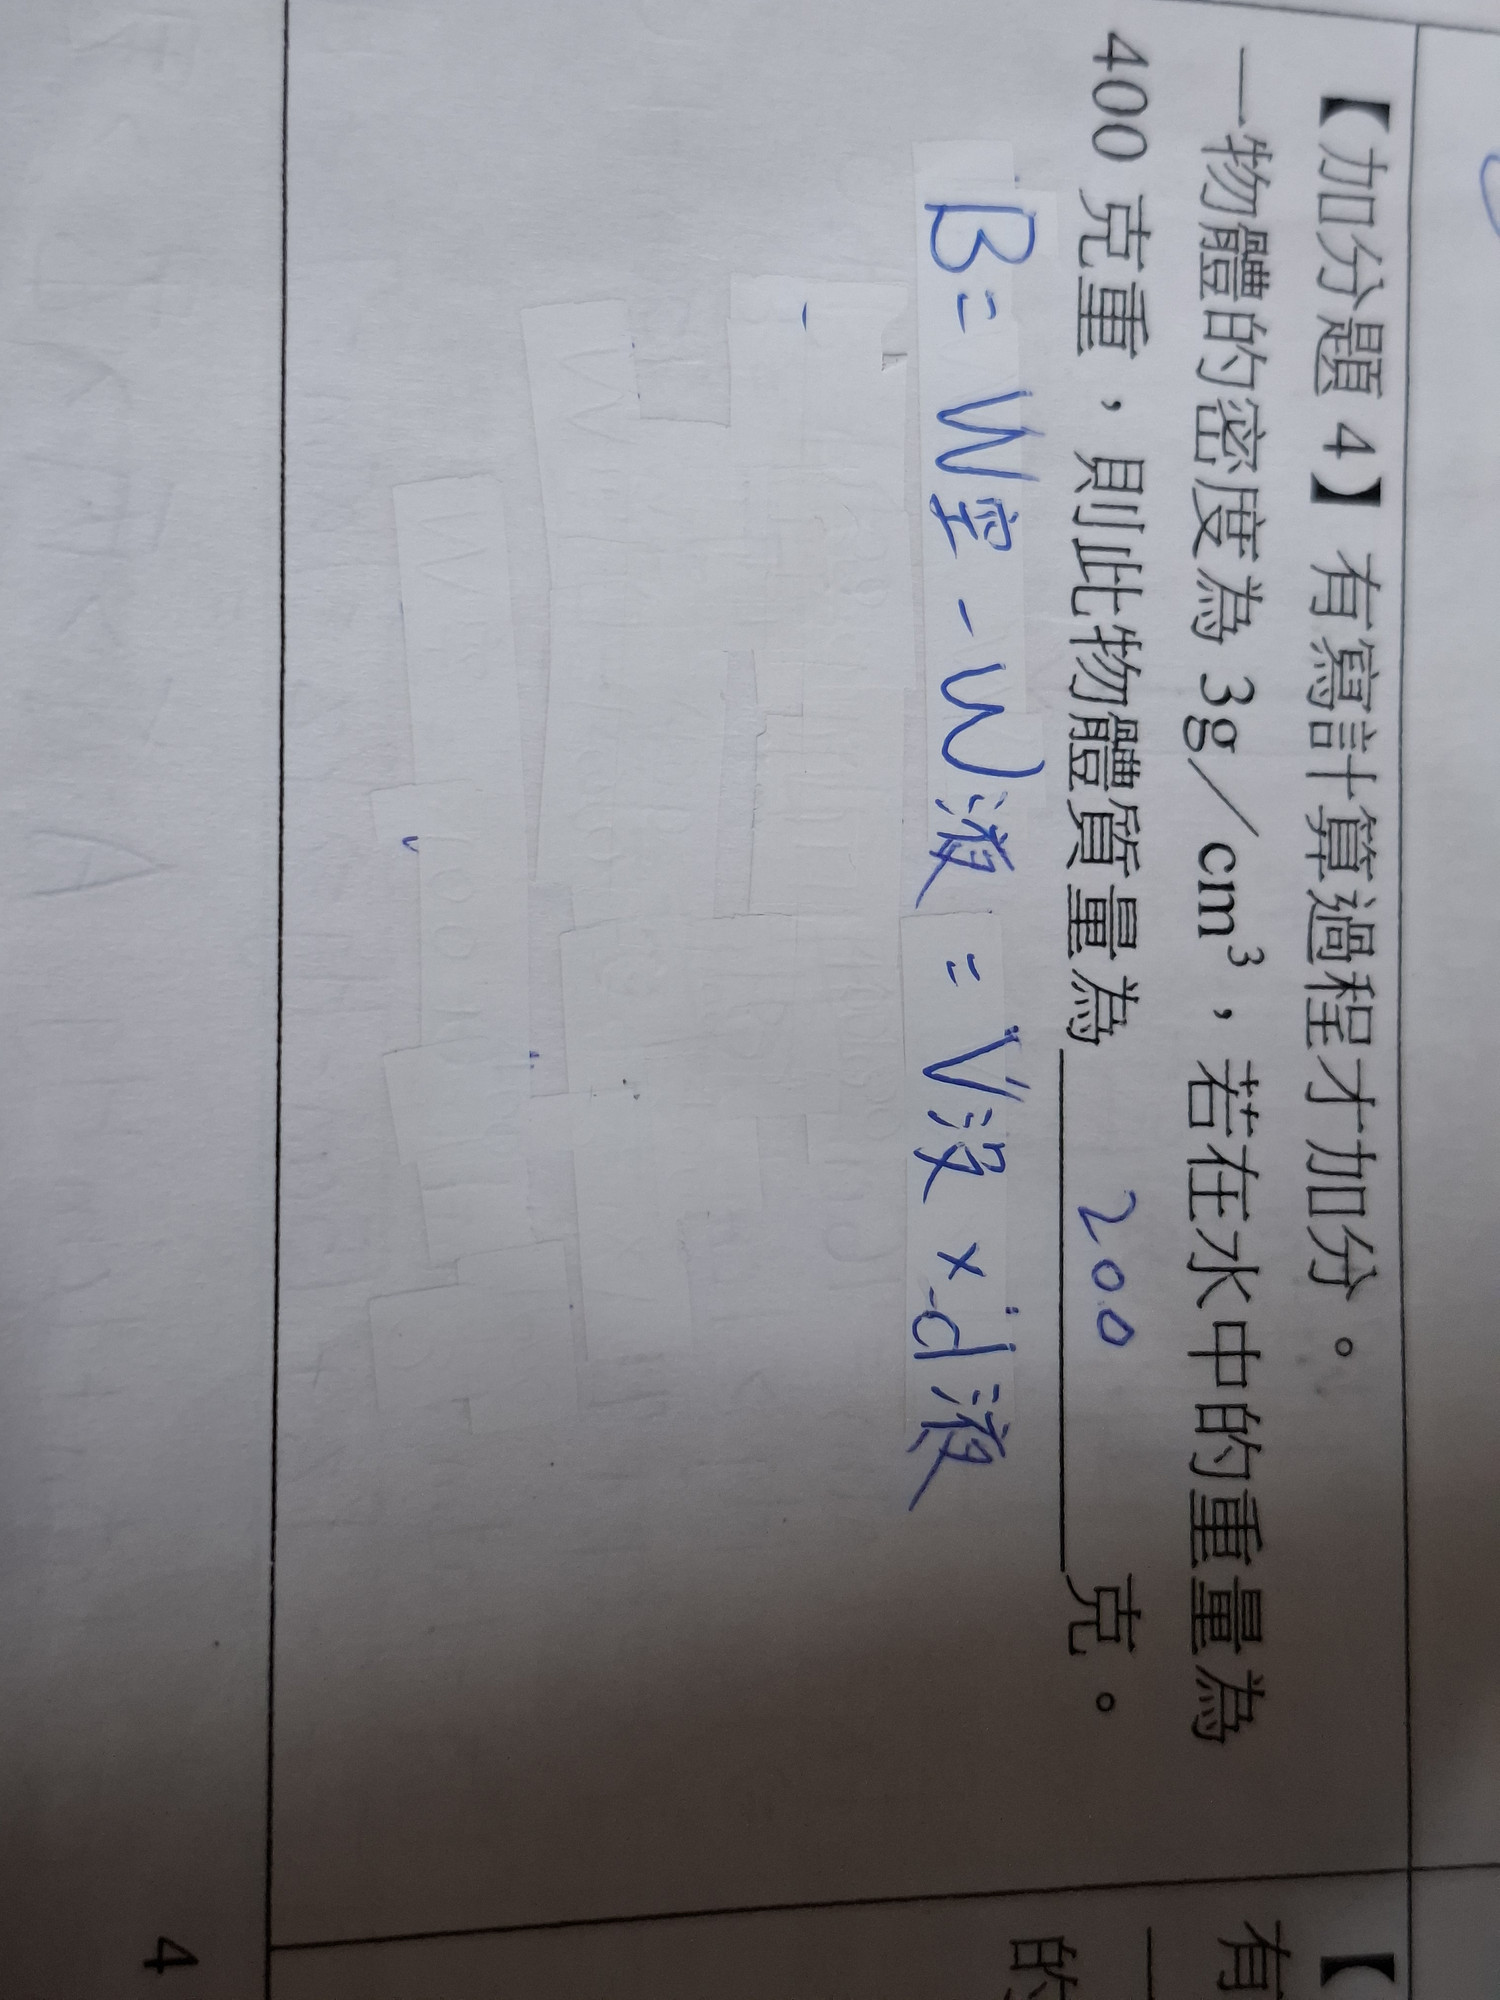 【加分題 4】有寫計算過程才加分。
一物體的密度為 3g／cm³，若在水中的重量為
400 克重，則此物體質量為 200 克。
B = W空 - W液 = V沒 × d液
【
有
一
的
4